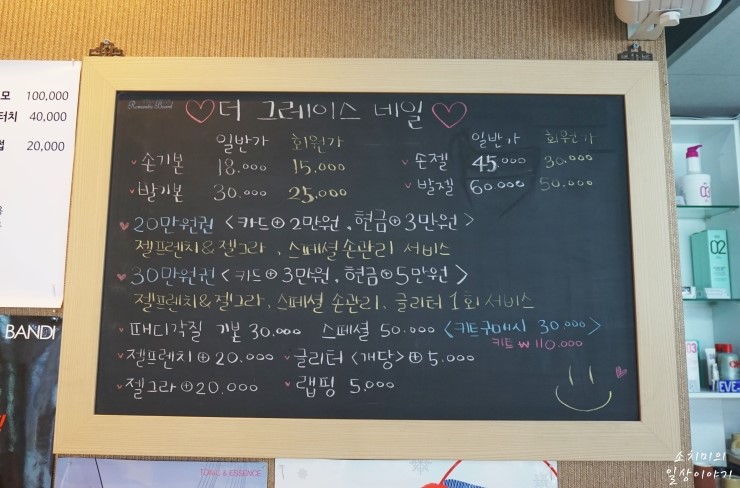 모 100,000
터치 40,000
접 20,000
Romantic Board
♡더 그레이스 네일♡
일반가 회원가 일반가 회원가
손기본 18.000 15.000 손젤 45.000 30.000
발기본 30.000 25.000 발젤 60.000 50.000
♥20만원권 <카드⊕2만원, 현금⊕3만원>
젤프렌치&젤그라, 스페셜손관리 서비스
♥30만원권 <카드⊕3만원, 현금⊕5만원>
젤프렌치&젤그라, 스페셜 손관리, 글리터 1회 서비스
패디각질 기본 30.000 스페셜 50.000 <키트구매시 30.000>
키트 ₩110.000
젤프렌치⊕20.000 글리터 <개당>⊕5.000
젤그라⊕20.000 랩핑 5.000
BANDI
TONIC & ESSENCE
03
02
EVE
소치미의
일상이야기